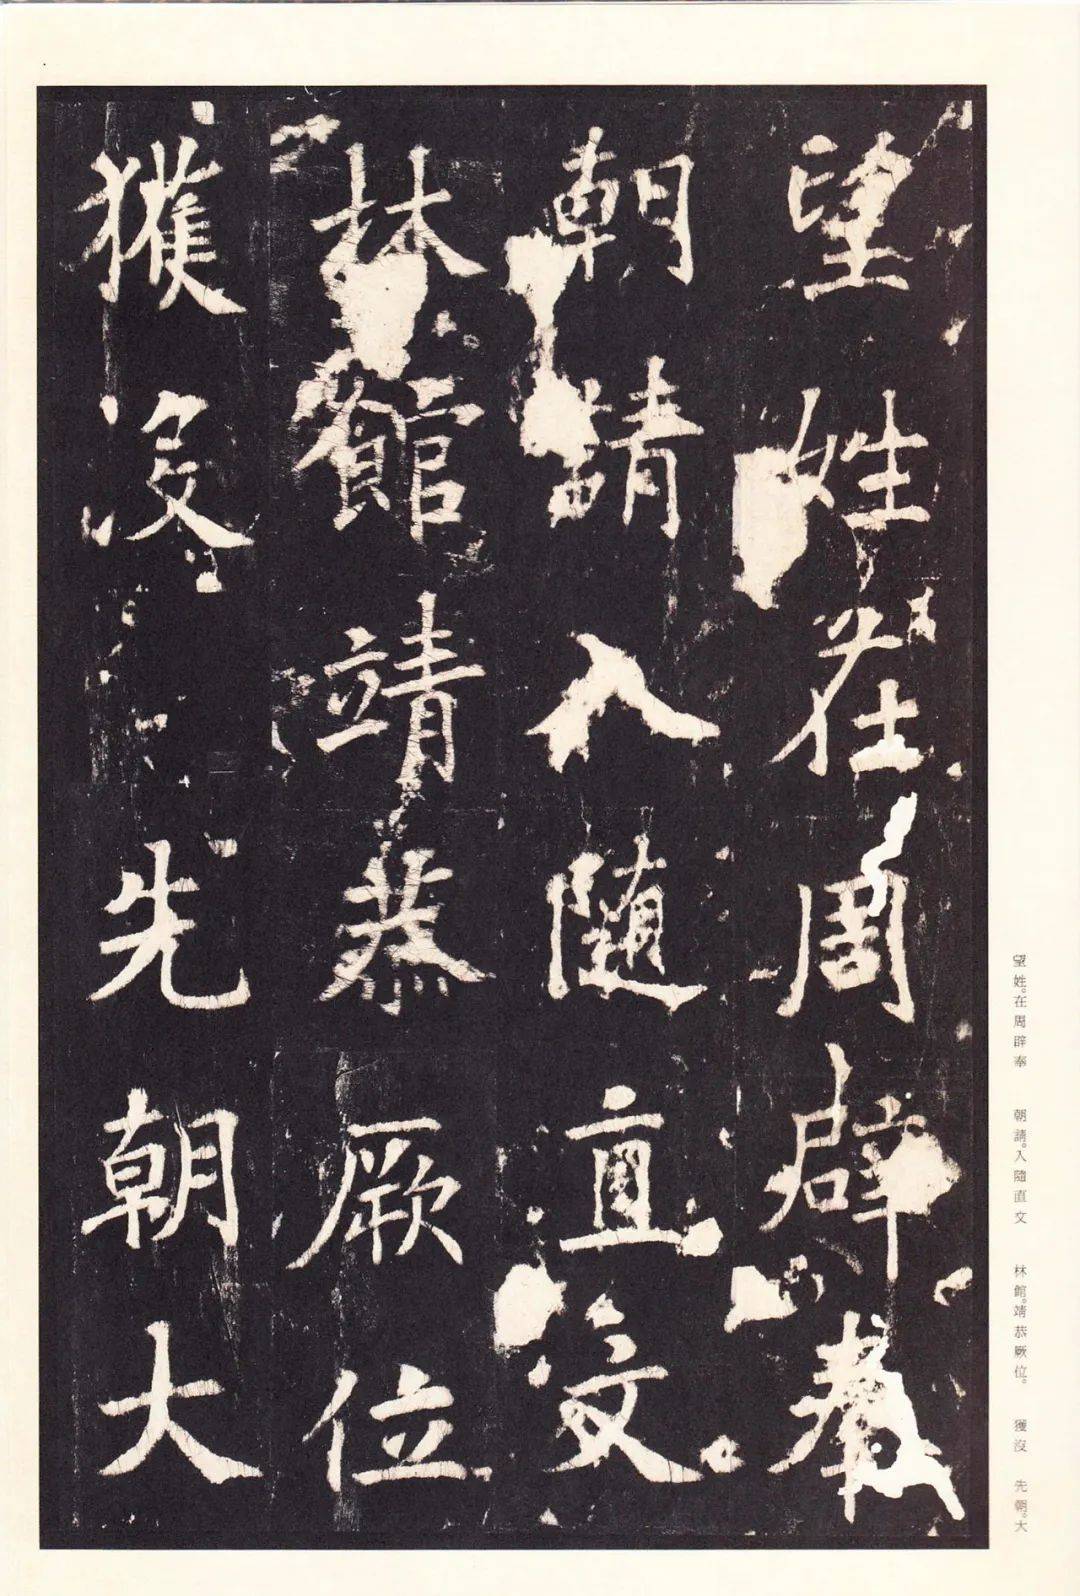 望姓在周辟奉
朝請入隨直文
林館靖恭厥位
獲沒先朝大
望姓。在周辟奉　朝請。入隨直文　林館。靖恭厥位。　獲沒　先朝。大